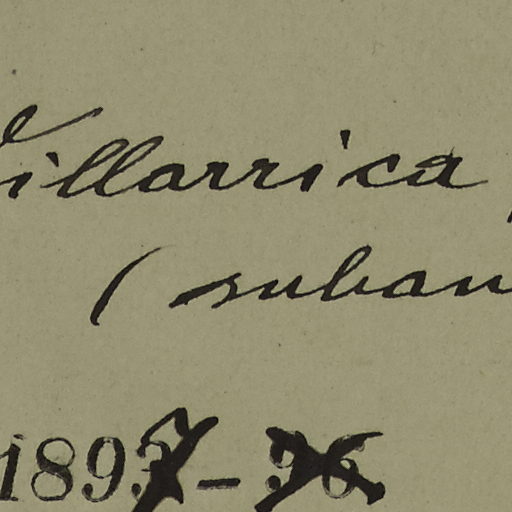 Villarrica
( suban
1897 -